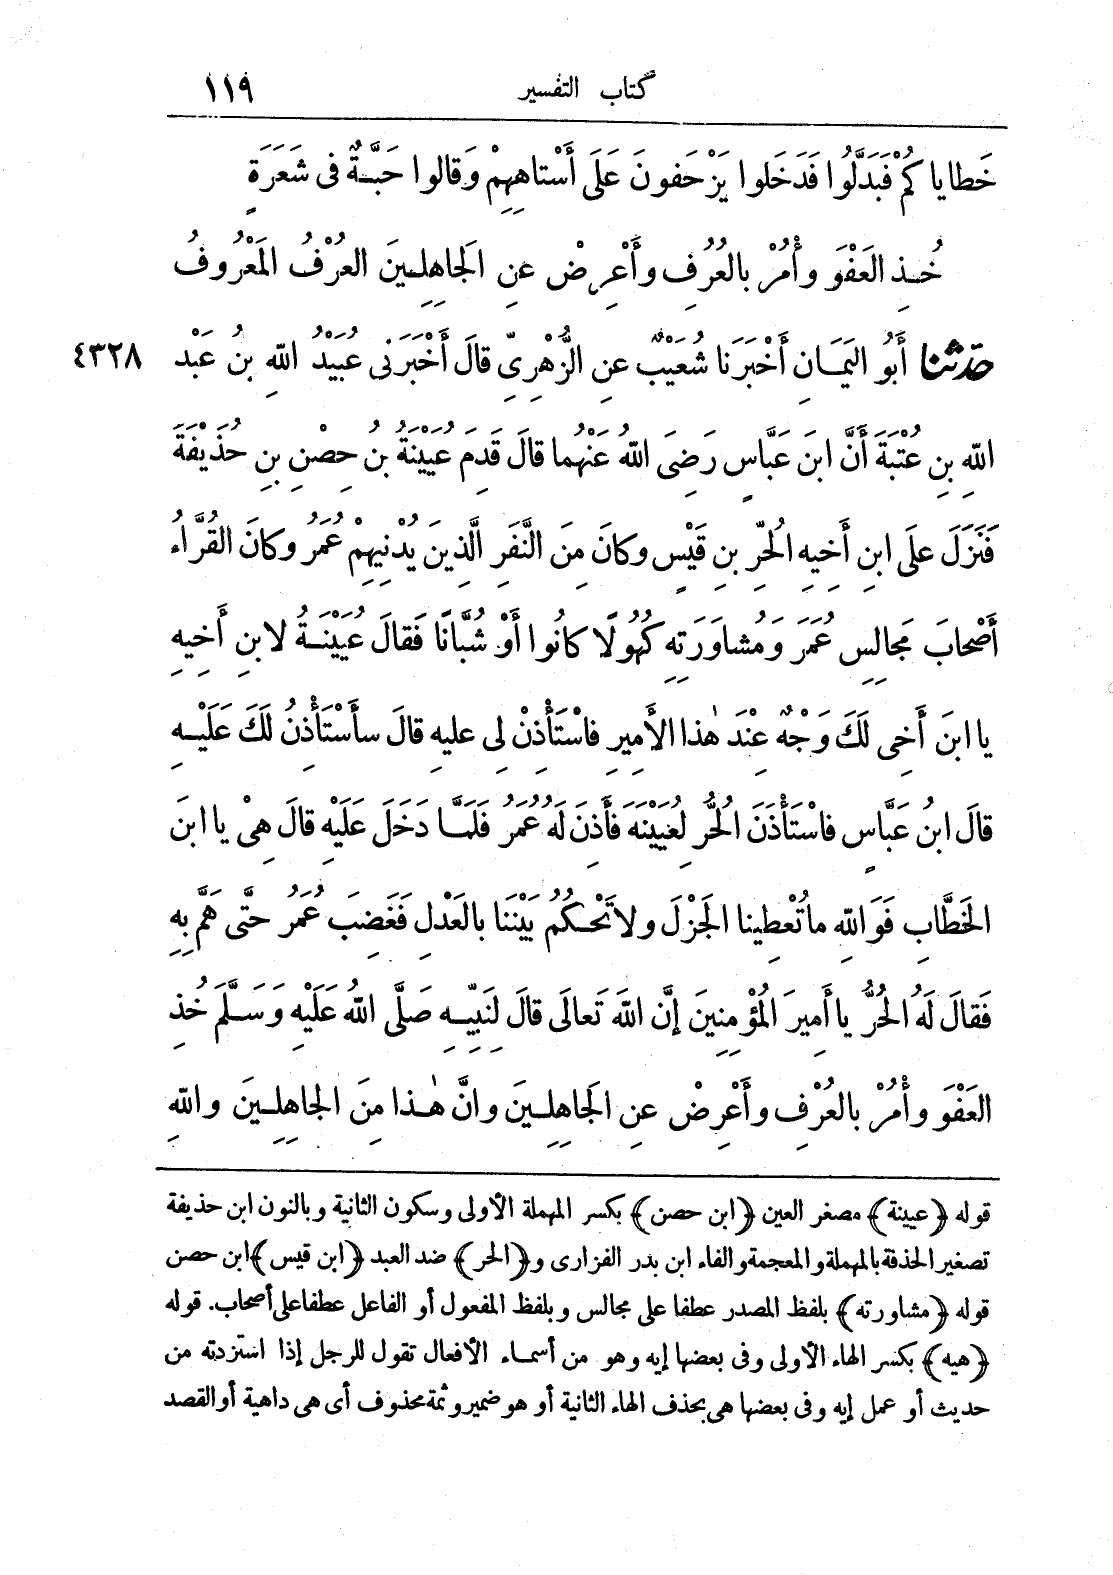 كتاب التفسير ١١٩
خَطاياكُمْ فَبَدَّلُوا فَدَخَلوا يَزْحَفونَ عَلَى أَسْتاهِهِمْ وَقالوا حَبَّةٌ فى شَعَرَةٍ
خُذِ العَفْوَ وأْمُرْ بالعُرْفِ وأَعْرِضْ عنِ الجَاهِلِينَ العُرْفُ المَعْرُوفُ
حَدثنا أَبُو اليَمَانِ أَخْبَرَنَا شُعَيْبٌ عنِ الزُّهْرِىِّ قالَ أَخْبَرَنى عُبَيْدُ اللهِ بنُ عَبْدِ ٤٣٢٨
اللهِ بنِ عُتْبَةَ أَنَّ ابنَ عَبَّاسٍ رَضِىَ اللهُ عَنْهُما قالَ قَدِمَ عُيَيْنَةُ بنُ حِصْنِ بنِ حُذَيْفَةَ
فَنَزَلَ علَى ابنِ أَخِيهِ الحُرِّ بنِ قَيْسٍ وكانَ مِنَ النَّفَرِ الَّذِينَ يُدْنِيهِمْ عُمَرُ وكانَ القُرَّاءُ
أَصْحابَ مَجالِسِ عُمَرَ وَمُشاوَرَتِهِ كُهُولًا كانُوا أَوْ شُبَّانًا فَقالَ عُيَيْنَةُ لابنِ أَخِيهِ
يا ابنَ أَخِى لَكَ وَجْهٌ عِنْدَ هٰذا الأَمِيرِ فاسْتَأْذِنْ لِى عليهِ قالَ سأَسْتَأْذِنُ لَكَ عَلَيْهِ
قالَ ابنُ عَبَّاسٍ فاسْتَأْذَنَ الحُرُّ لِعُيَيْنَةَ فأَذِنَ لَهُ عُمَرُ فَلَمَّا دَخَلَ عَلَيْهِ قالَ هِىْ يا ابنَ
الخَطَّابِ فَوَاللهِ ما تُعْطِينا الجَزْلَ ولا تَحْكُمُ بَيْنَنا بالعَدْلِ فَغَضِبَ عُمَرُ حتَّى هَمَّ بِهِ
فَقالَ لَهُ الحُرُّ يا أَمِيرَ المُؤْمِنِينَ إِنَّ اللهَ تَعالَى قالَ لِنَبِيِّهِ صَلَّى اللهُ عَلَيْهِ وَسَلَّمَ خُذِ
العَفْوَ وأْمُرْ بالعُرْفِ وأَعْرِضْ عنِ الجَاهِلِينَ وانَّ هٰذا مِنَ الجاهِلِينَ واللهِ
قوله ﴿عيينة﴾ مصغر العين ﴿ابن حصن﴾ بكسر المهملة الأولى وسكون الثانية وبالنون ابن حذيفة
تصغير الحذفة بالمهملة والمعجمة والفاء ابن بدر الفزارى و﴿الحر﴾ ضد العبد ﴿ابن قيس﴾ ابن حصن
قوله ﴿مشاورته﴾ بلفظ المصدر عطفا على مجالس وبلفظ المفعول أو الفاعل عطفا على أصحاب. قوله
﴿هيه﴾ بكسر الهاء الأولى وفى بعضها إيه وهو من أسماء الأفعال تقول للرجل إذا استزدته من
حديث أو عمل إيه وفى بعضها هى بحذف الهاء الثانية أو هو ضمير وثمة محذوف أى هى داهية أو القصد